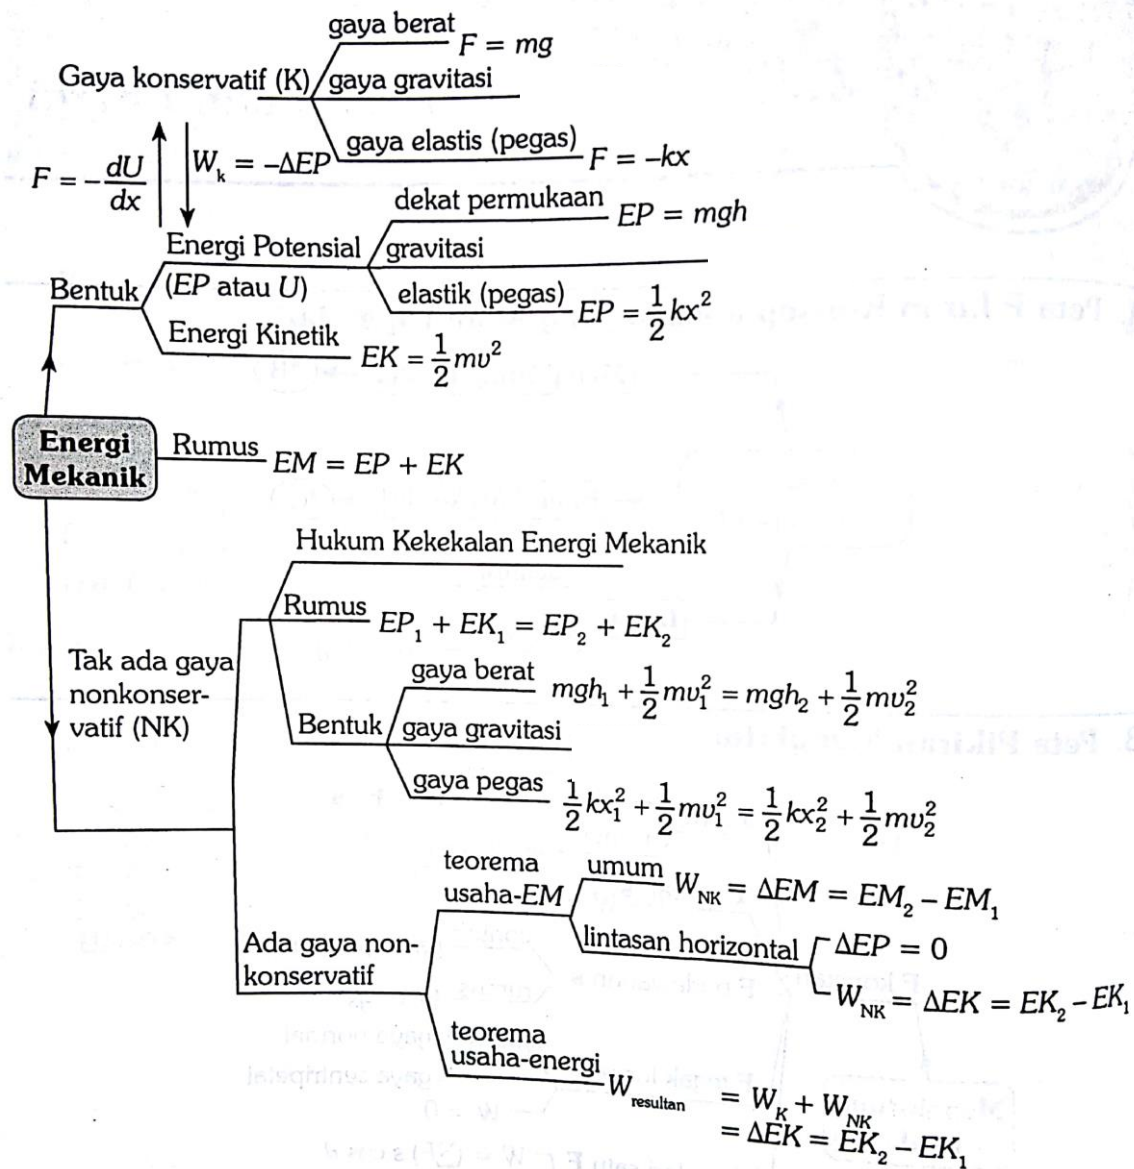 gaya berat F = mg
Gaya konservatif (K) gaya gravitasi
gaya elastis (pegas) F = –kx
F = –dU/dx
W_k = –ΔEP
dekat permukaan EP = mgh
Energi Potensial gravitasi
Bentuk (EP atau U) elastik (pegas) EP = 1/2 kx²
Energi Kinetik EK = 1/2 mv²
Energi
Mekanik
Rumus EM = EP + EK
Hukum Kekekalan Energi Mekanik
Rumus EP₁ + EK₁ = EP₂ + EK₂
Tak ada gaya
nonkonser-
vatif (NK)
gaya berat mgh₁ + 1/2 mv₁² = mgh₂ + 1/2 mv₂²
Bentuk gaya gravitasi
gaya pegas 1/2 kx₁² + 1/2 mv₁² = 1/2 kx₂² + 1/2 mv₂²
Ada gaya non-
konservatif
teorema
usaha-EM
umum W_NK = ΔEM = EM₂ – EM₁
lintasan horizontal ΔEP = 0
W_NK = ΔEK = EK₂ – EK₁
teorema
usaha-energi
W_resultan = W_K + W_NK
= ΔEK = EK₂ – EK₁